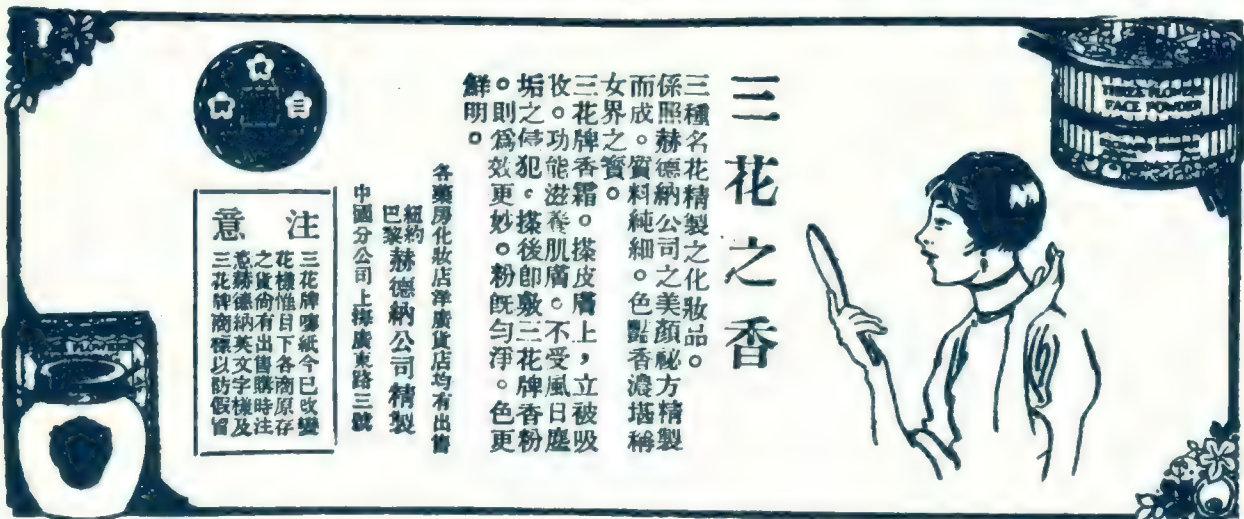 THREE FLOWERS
FACE POWDER
三花之香
三種名花精製之化妝品。
係照赫德納公司之美顏祕方精製
而成。質料純細。色豔香濃堪稱
女界之寶。
三花牌香霜。搽皮膚上，立被吸
收。功能滋養肌膚。不受風日塵
垢之侵犯。搽後卽敷三花牌香粉
。則爲效更妙。粉旣勻淨。色更
鮮明。
各藥房化妝店洋廣貨店均有出售
紐約
巴黎
赫德納公司精製
中國分公司上海廣東路三號
注意
三花牌嘜紙今已改變
花樣惟目下各商原存
之貨尙有出售購時注
意赫德納英文字樣及
三花牌商標以防假冒